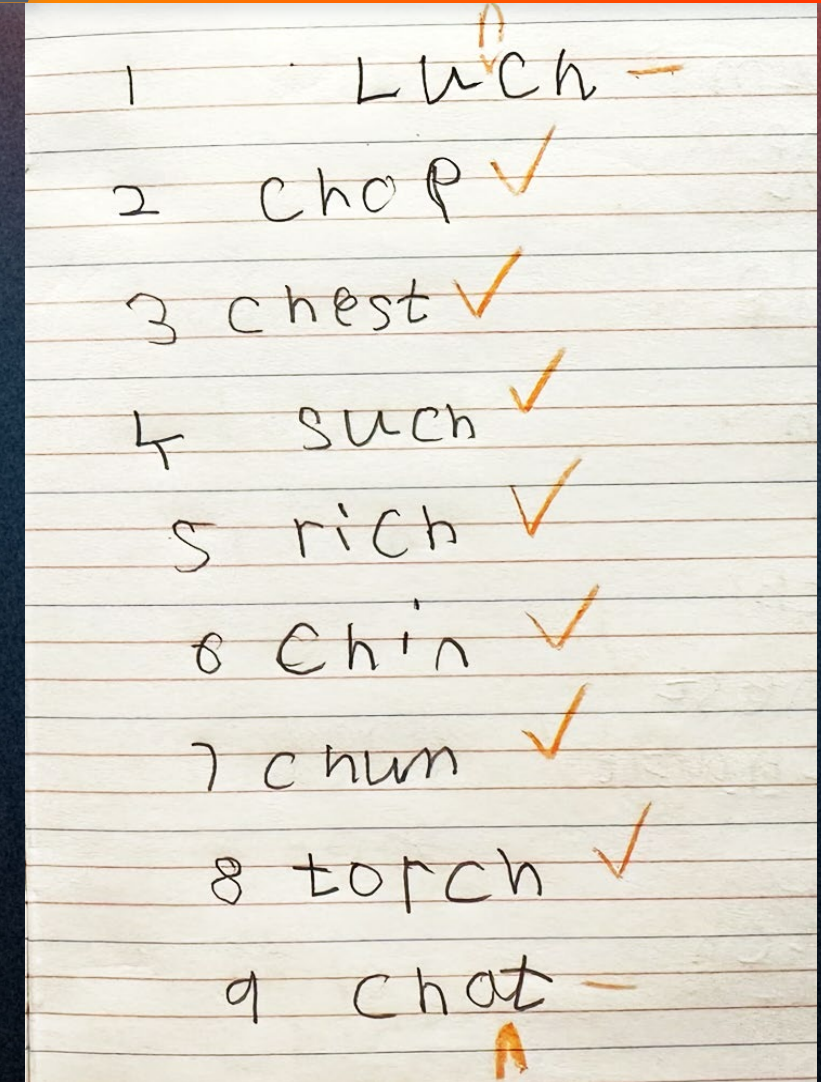 n
1 Luch -
2 chop ✓
3 chest ✓
4 such ✓
5 rich ✓
6 Chin ✓
7 chum ✓
8 torch ✓
9 chat -